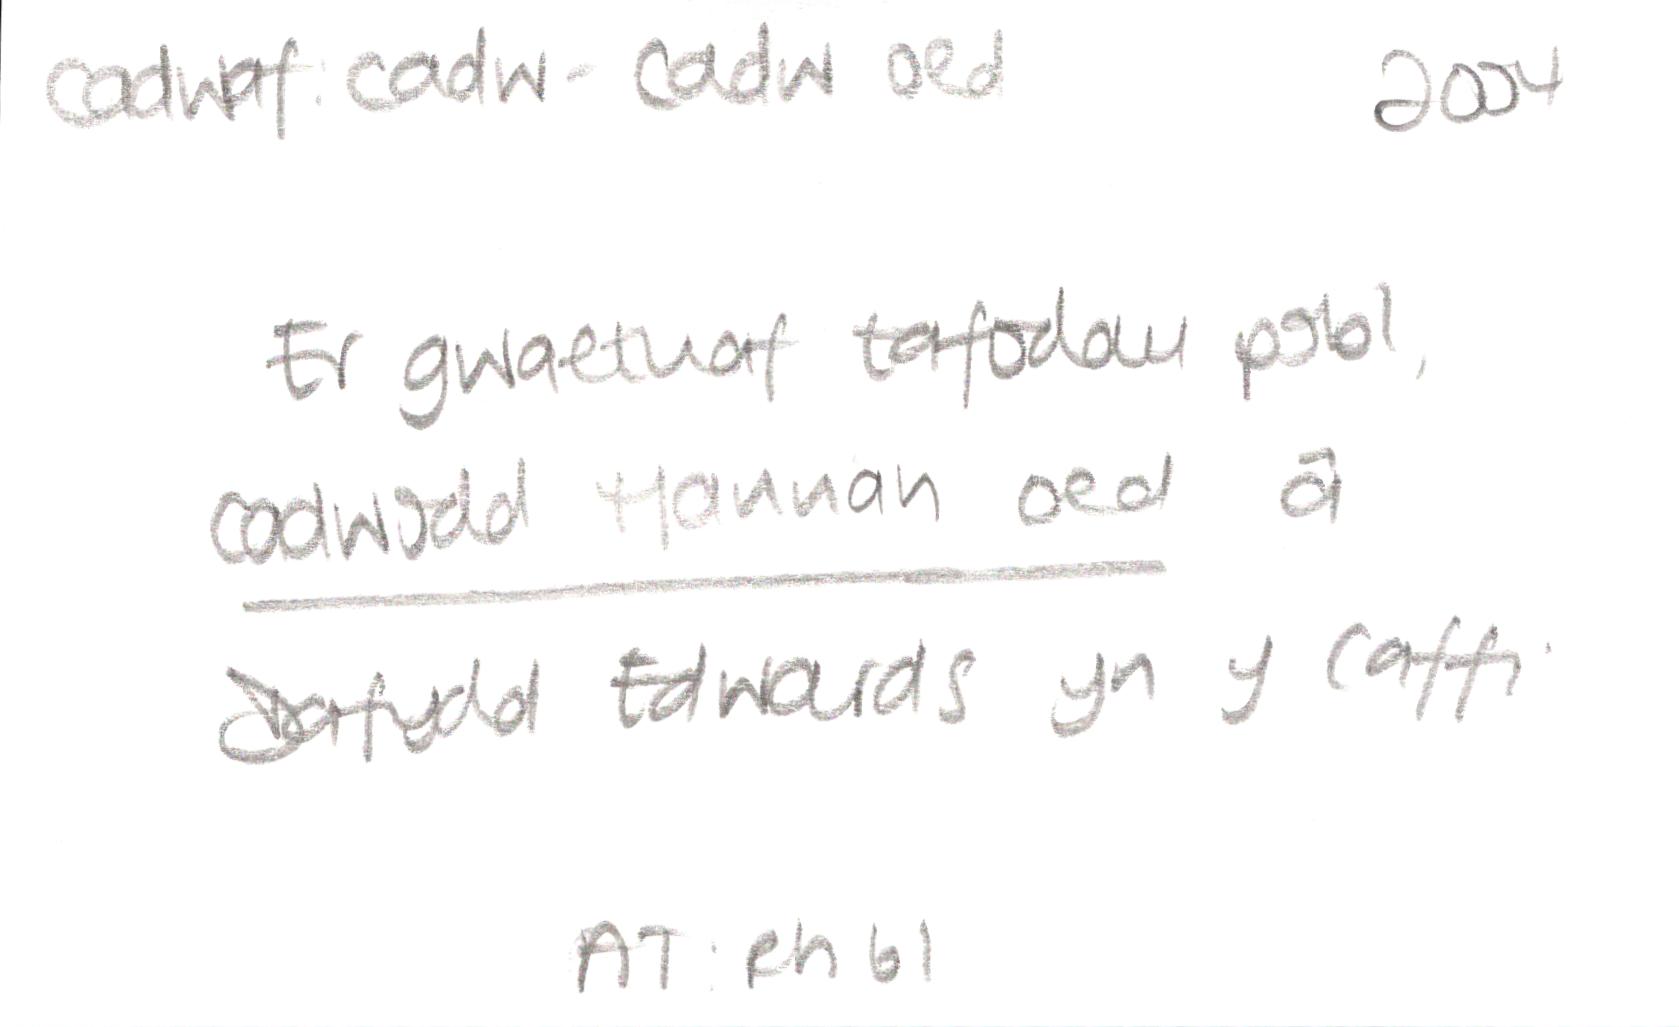 cadwaf: cadw - cadw oed 2004
Er gwaethaf tafodau pobl,
cadwodd Hannah oed â
Dafydd Edwards yn y caffi.
AT: Rh 61